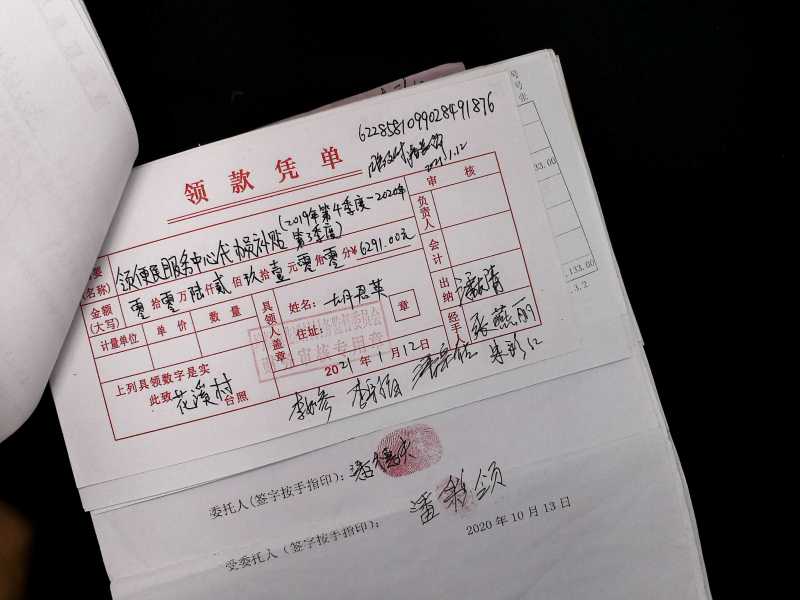 6228581099028491876
2021.1.12
领款凭单
要 领便民服务中心代办员补贴 (2019年第4季度-2020年第3季度)
(名称)
审核
金额(大写) 零拾零万陆仟贰佰玖拾壹元零角零分¥6291.00元
负责人
会计
计量单位 单价 数量
具领人盖章
姓名: 胡君英 章
住址:
出纳
经手人 张燕丽
财务审核专用章
2021年1月12日
上列具领数字是实
此致 花溪村 台照
委托人(签字按手指印):
受委托人(签字按手指印):
2020年10月13日
号
号
张
33.00
133.00
3.2